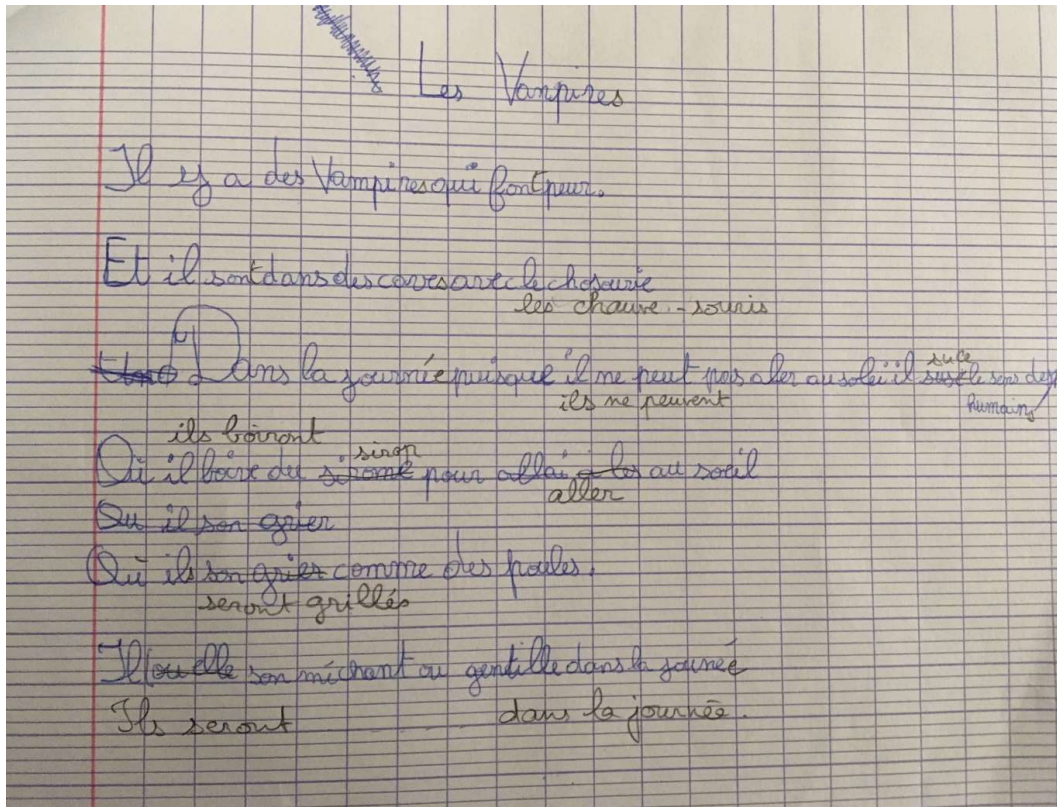 Les Vanpires
Il y a des Vampires qui font peur.
Et il sont dans des caves avec le chosourie
les chauve-souris
Dans la journée puisque il ne peut pas aler au soleil il suse le sens des
suce
ils ne peuvent
humains
ils boiront
sirop
Ou il boive du sirome pour allai à les au soeil
aller
Ou il son grier
Ou ils son grier comme des poules.
seront grillés
Il (ou elle son michant ou gentille dans la jounée
Ils seront dans la journée.